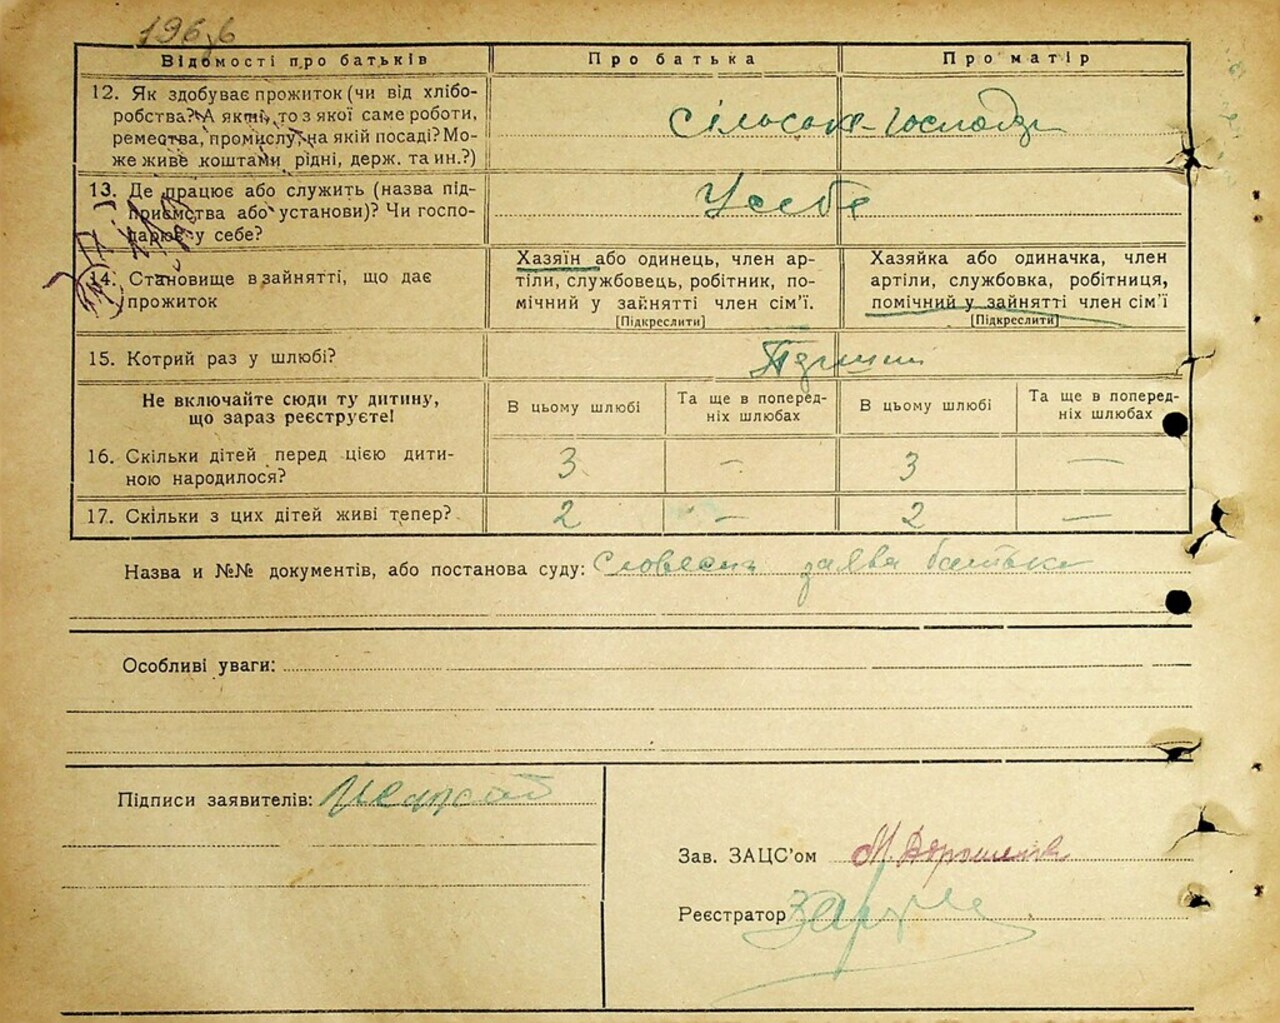 Відомості про батьків Про батька Про матір
12. Як здобуває прожиток (чи від хлібо-
робства? А як ні, то з якої саме роботи,
ремества, промислу, на якій посаді? Мо-
же живе коштами рідні, держ. та ин.?)
13. Де працює або служить (назва під-
приємства або установи)? Чи госпо-
дарює у себе?
У себе
14. Становище в зайнятті, що дає
прожиток
Хазяїн або одинець, член ар-
тіли, службовець, робітник, по-
мічний у зайнятті член сім’ї.
[Підкреслити]
Хазяйка або одиначка, член
артіли, службовка, робітниця,
помічний у зайнятті член сім’ї
[Підкреслити]
15. Котрий раз у шлюбі?
Не включайте сюди ту дитину,
що зараз реєструєте!
В цьому шлюбі
Та ще в поперед-
ніх шлюбах
В цьому шлюбі
Та ще в поперед-
ніх шлюбах
16. Скільки дітей перед цією дити-
ною народилося?
3 — 3 —
17. Скільки з цих дітей живі тепер? 2 — 2 —
Назва и №№ документів, або постанова суду: заява батька
Особливі уваги:
Підписи заявителів:
Зав. ЗАЦС’ом
Реєстратор